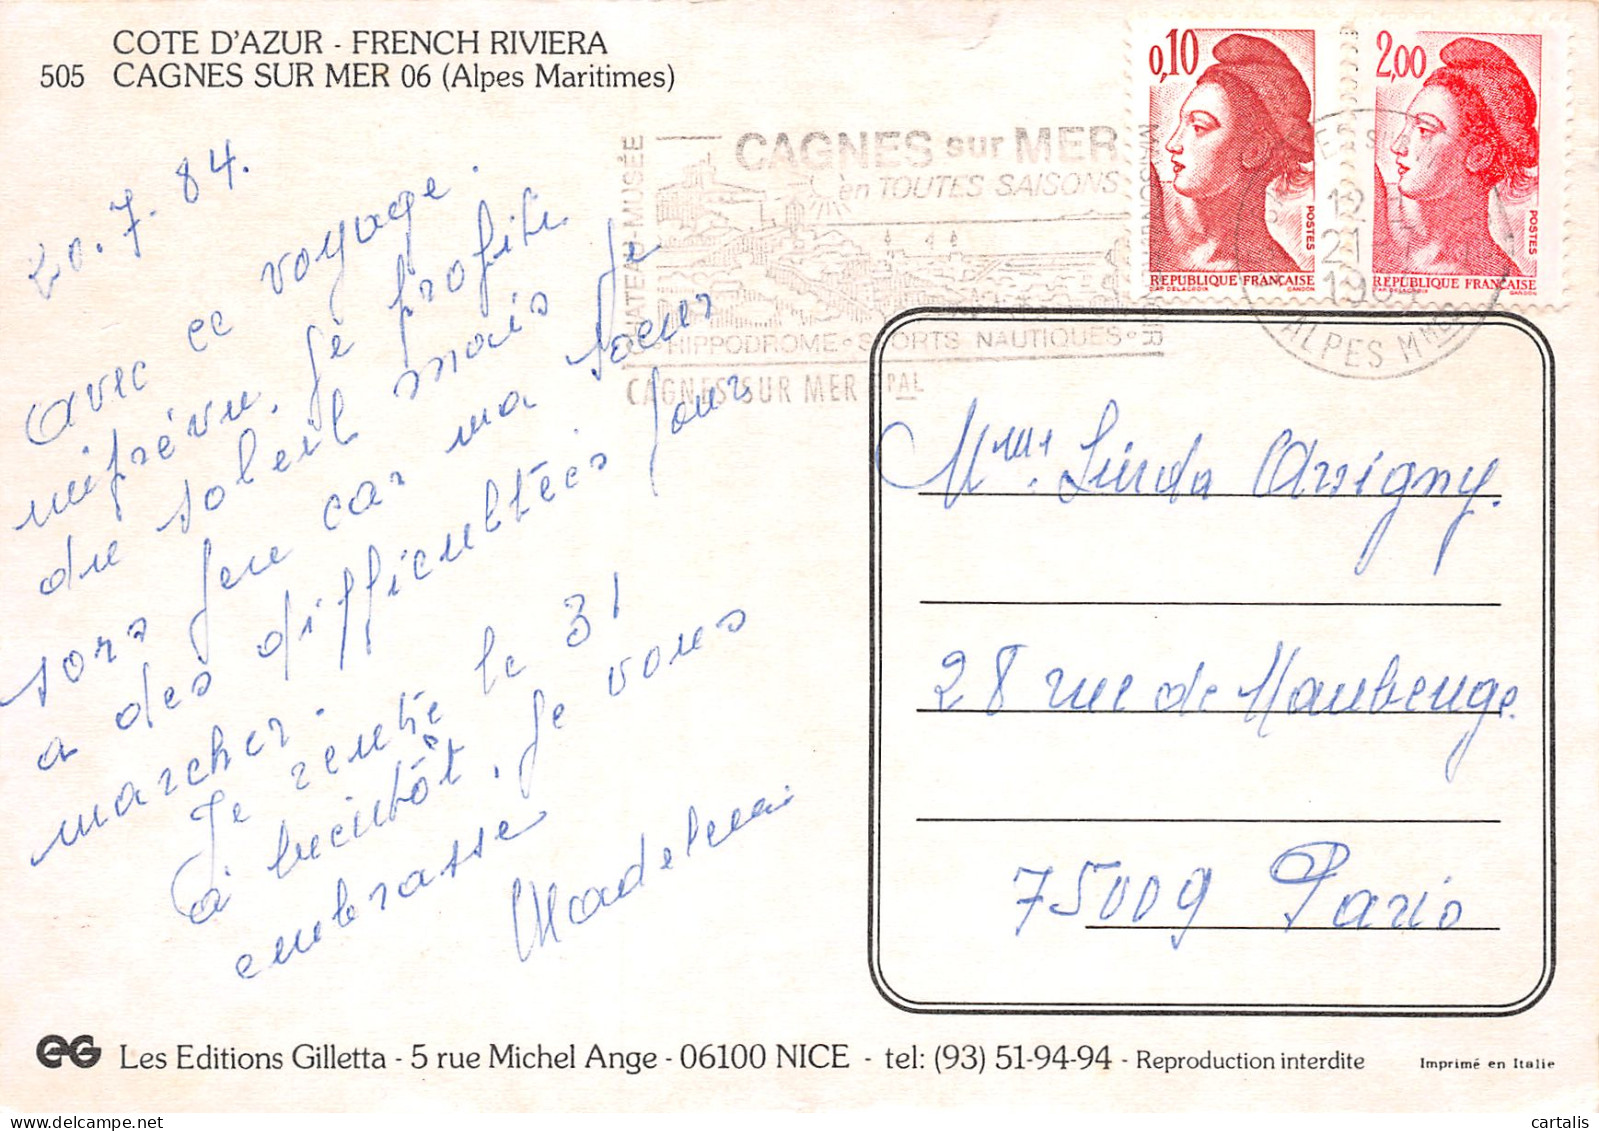 COTE D'AZUR - FRENCH RIVIERA
505 CAGNES SUR MER 06 (Alpes Maritimes)
20.7.84.
avec ce voyage
imprévu. Je profite
du soleil mais je
sors peu car ma soeur
a des difficultées pour
marcher.
Je rentre le 31
à bientôt. Je vous
embrasse
0,10
POSTES
REPUBLIQUE FRANÇAISE
D'AP DELACROIX GANDON
2,00
POSTES
REPUBLIQUE FRANÇAISE
D'AP DELACROIX GANDON
CAGNES sur MER
en TOUTES SAISONS
CHATEAU-MUSÉE
HIPPODROME SPORTS NAUTIQUES
CAGNES SUR MER PAL
12
21
ALPES MMES
Mme. Linda Arrigny.
28 rue de Maubeuge.
75009 Paris
EG Les Editions Gilletta - 5 rue Michel Ange - 06100 NICE - tel: (93) 51-94-94 - Reproduction interdite
Imprimé en Italie
cartalis